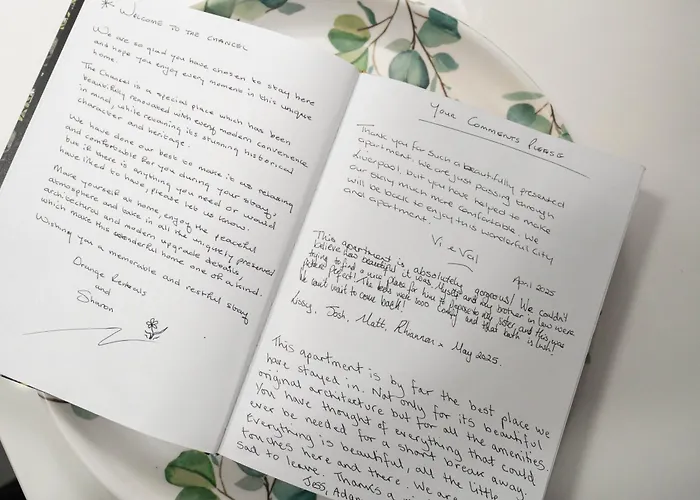 * Welcome to the Chancel
We are so glad you have chosen to stay here
and hope you enjoy every moment in this unique
home.
The Chancel is a special place which has been
beautifully renovated with every modern convenience
in mind, while retaining its stunning historical
character and heritage.
We have done our best to make it as relaxing
and comfortable for you during your stay,
but if there is anything you need or would
have liked to have, please let us know.
Make yourself at home, enjoy the peaceful
atmosphere and take in all the uniquely preserved
architectural and modern upgrade details,
which make this wonderful home one of a kind.
Wishing you a memorable and restful stay
Orange Rentals
and
Sharon
Your Comments Please
Thank you for such a beautifully presented
apartment. We are just passing through
Liverpool, but you have helped to make
our stay much more comfortable. We
will be back to enjoy this wonderful city
and apartment.
Vi & Val
April 2025
This apartment is absolutely gorgeous! We couldn't
believe how beautiful it was. Myself and my brother in law were
trying to find a nice place for him to propose to my sister, and this was
perfect! The beds were sooo comfy and that bath is lush!
We can't want to come back!
Lissy, Josh, Matt, Rhiannon x May 2025.
This apartment is by far the best place we
have stayed in. Not only for its beautiful
original architecture but for all the amenities.
You have thought of everything that could
ever be needed for a short break away.
Everything is beautiful, all the little
touches here and there. We are
sad to leave. Thanks a
Jess, Adam